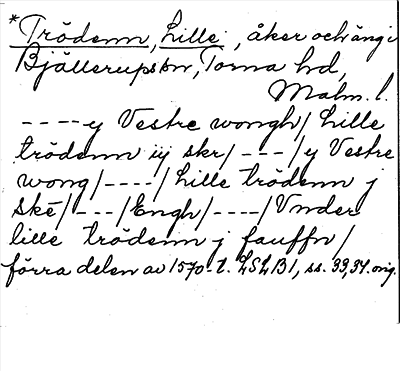 *Trödenn, Lille, åker och äng i
Bjällerups sn, Torna hd,
Malm. l.
----y Vestre wongh/ Lille
trödenn iij skr/ ---/y Vestre
wong/----/Lille trödenn j
ske/---/Engh/----/Vnder
lille trödenn j fauffn/
förra delen av 1570-t. LSLB1, ss. 33, 34. orig.